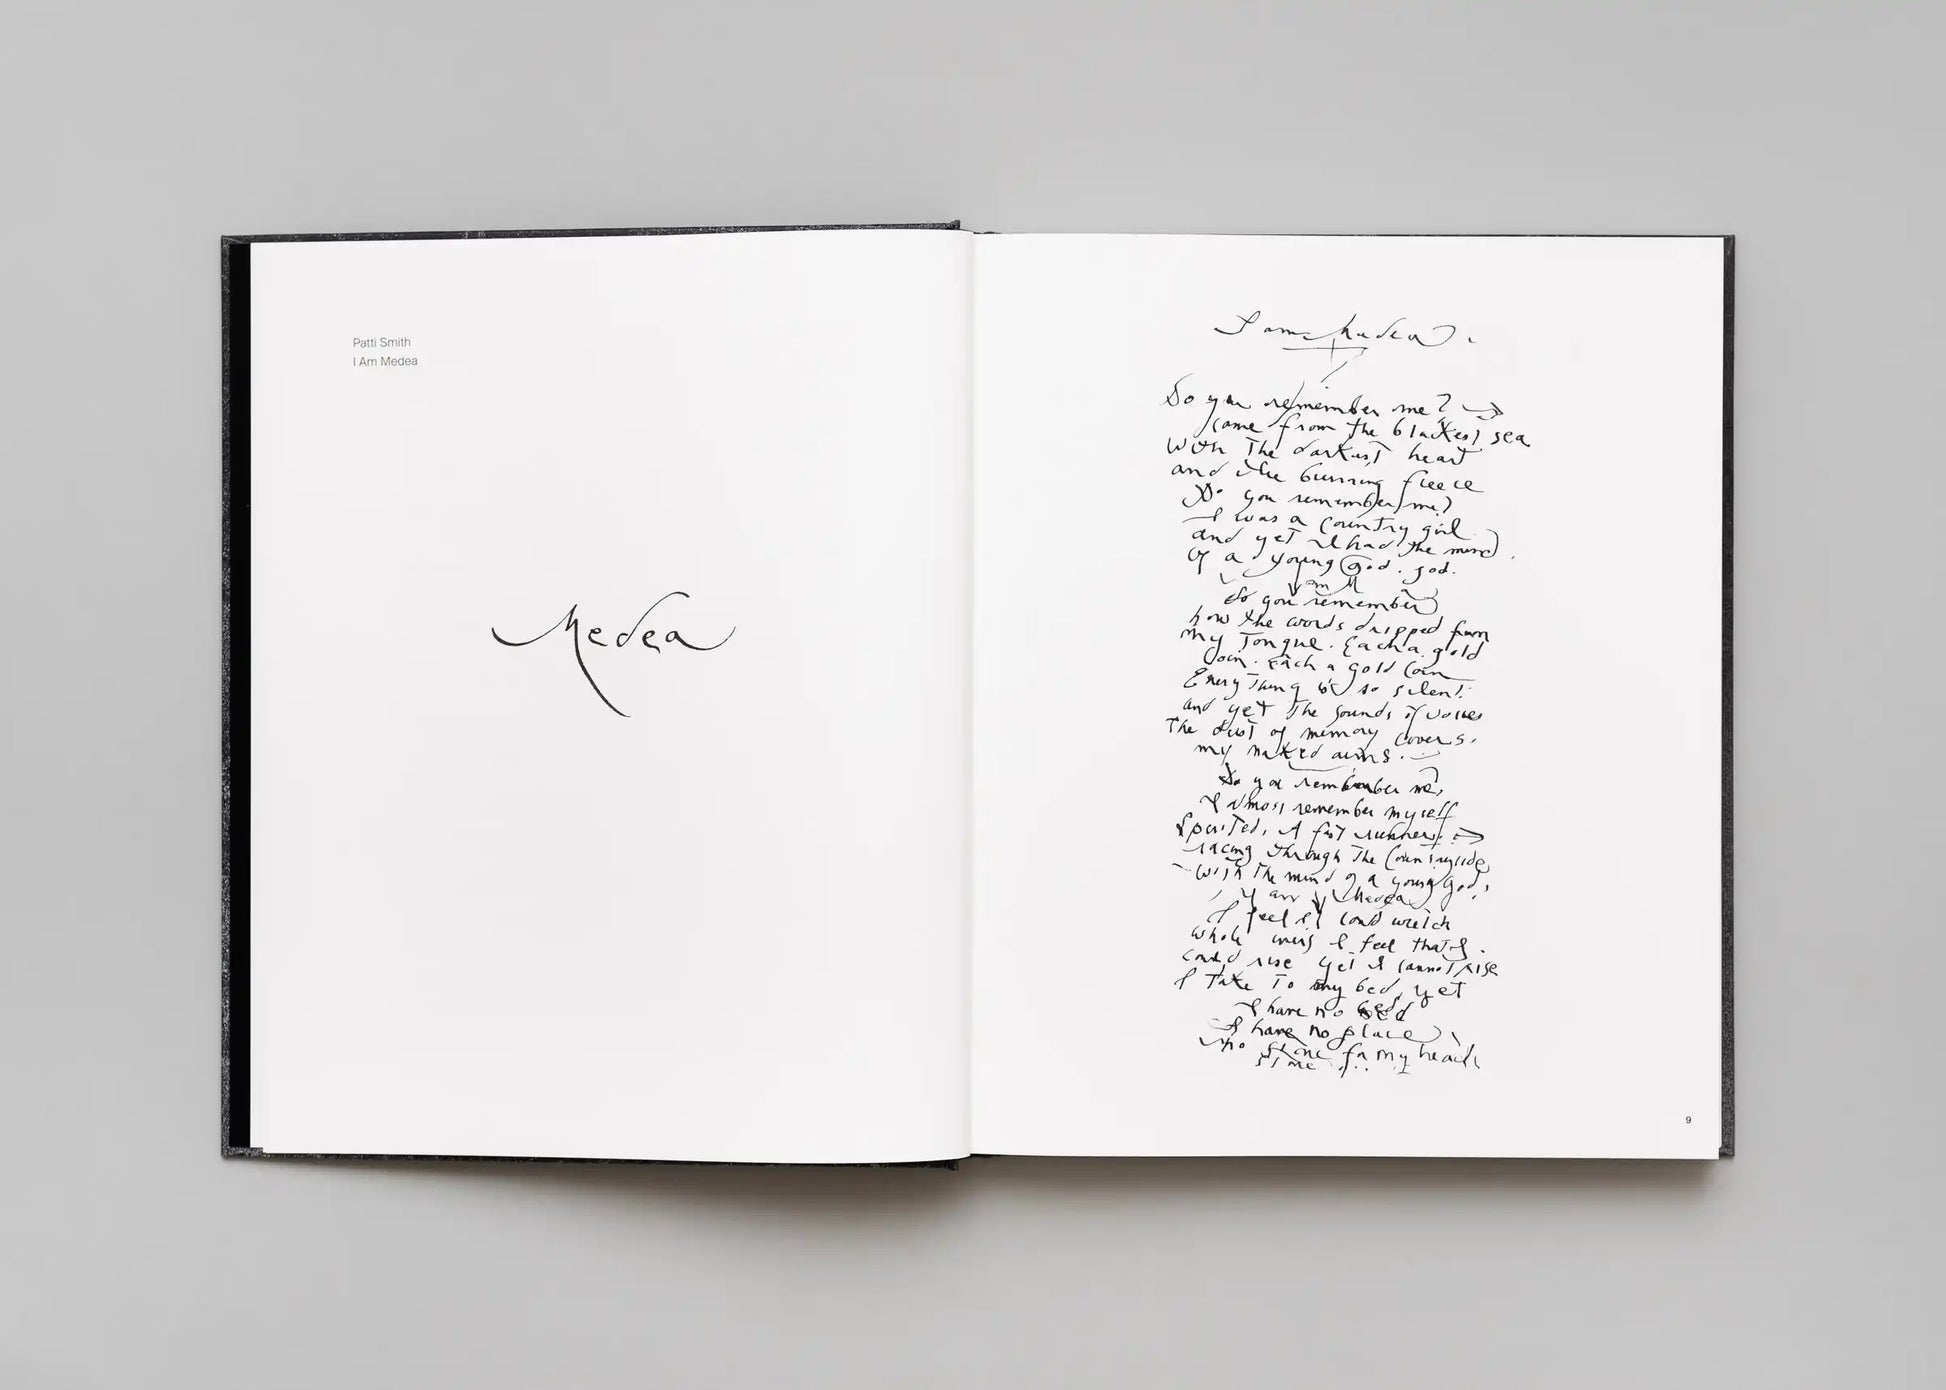 Patti Smith
I Am Medea
Medea
I am Medea.
Do you remember me?
I came from the blackest sea
With the darkest heart
and the burning fleece
Do you remember me?
I was a country girl
and yet I had the mind
of a young God. god.
Do you remember
how the words dripped from
my Tongue. Each a gold
Coin. Each a gold Coin
Every Thing is so silent.
and yet the sounds of voices
The dust of memory covers.
my naked arms.
Do you remember me,
I almost remember myself
Spirited, A fast runner.
racing through the Countryside
with the mind of a young God,
I am Medea
I feel I could wretch
whole I feel that I
could rise yet I cannot rise
I Take To my bed, yet
I have no bed
I have no place
no stone for my head
stone
9